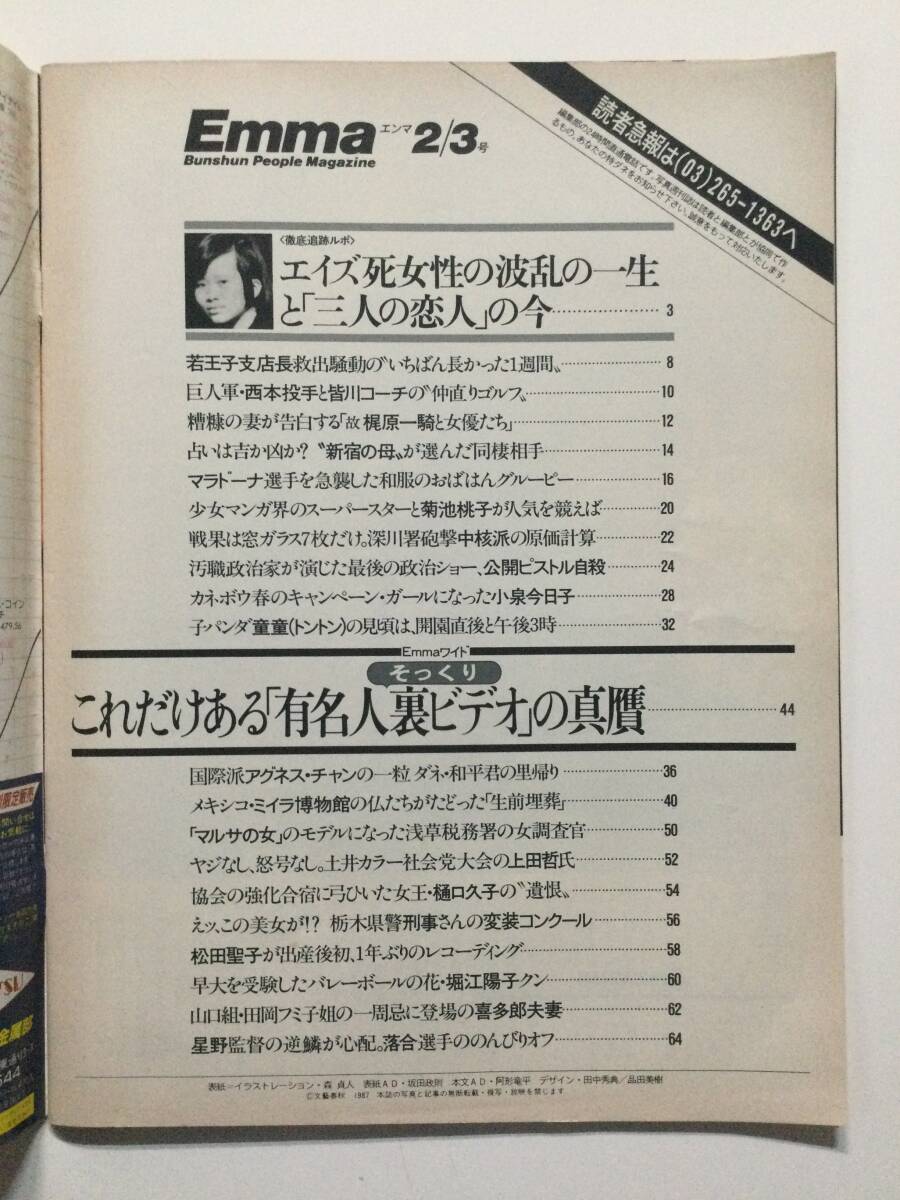 Emma エンマ 2/3号
Bunshun People Magazine
読者急報は(03)265-1363へ
編集部の24時間直通電話です。写真週刊誌は読者と編集部とが協同で作
るもの。あなたの特ダネをお知らせ下さい。誠意をもって対応いたします。
〈徹底追跡ルポ〉
エイズ死女性の波乱の一生
と「三人の恋人」の今…………………3
若王子支店長救出騒動の〝いちばん長かった1週間〟…………………8
巨人軍・西本投手と皆川コーチの〝仲直りゴルフ〟…………………10
糟糠の妻が告白する「故 梶原一騎と女優たち」…………………12
占いは吉か凶か? 〝新宿の母〟が選んだ同棲相手…………………14
マラドーナ選手を急襲した和服のおばはんグルーピー…………………16
少女マンガ界のスーパースターと菊池桃子が人気を競えば…………………20
戦果は窓ガラス7枚だけ。深川署砲撃中核派の原価計算…………………22
汚職政治家が演じた最後の政治ショー、公開ピストル自殺…………………24
カネボウ春のキャンペーン・ガールになった小泉今日子…………………28
子パンダ童童(トントン)の見頃は、開園直後と午後3時…………………32
Emmaワイド
そっくり
これだけある「有名人裏ビデオ」の真贋…………………44
国際派アグネス・チャンの一粒ダネ・和平君の里帰り…………………36
メキシコ・ミイラ博物館の仏たちがたどった「生前埋葬」…………………40
「マルサの女」のモデルになった浅草税務署の女調査官…………………50
ヤジなし、怒号なし。土井カラー社会党大会の上田哲氏…………………52
協会の強化合宿に弓ひいた女王・樋口久子の〝遺恨〟…………………54
えッ、この美女が!? 栃木県警刑事さんの変装コンクール…………………56
松田聖子が出産後初、1年ぶりのレコーディング…………………58
早大を受験したバレーボールの花・堀江陽子クン…………………60
山口組・田岡フミ子姐の一周忌に登場の喜多郎夫妻…………………62
星野監督の逆鱗が心配。落合選手ののんびりオフ…………………64
表紙=イラストレーション・森 貞人 表紙AD・坂田政則 本文AD・阿形竜平 デザイン・田中秀典/品田美樹
©文藝春秋 1987 本誌の写真と記事の無断転載・複写・放映を禁じます
コイン
479.56
限定販売
金属部
644